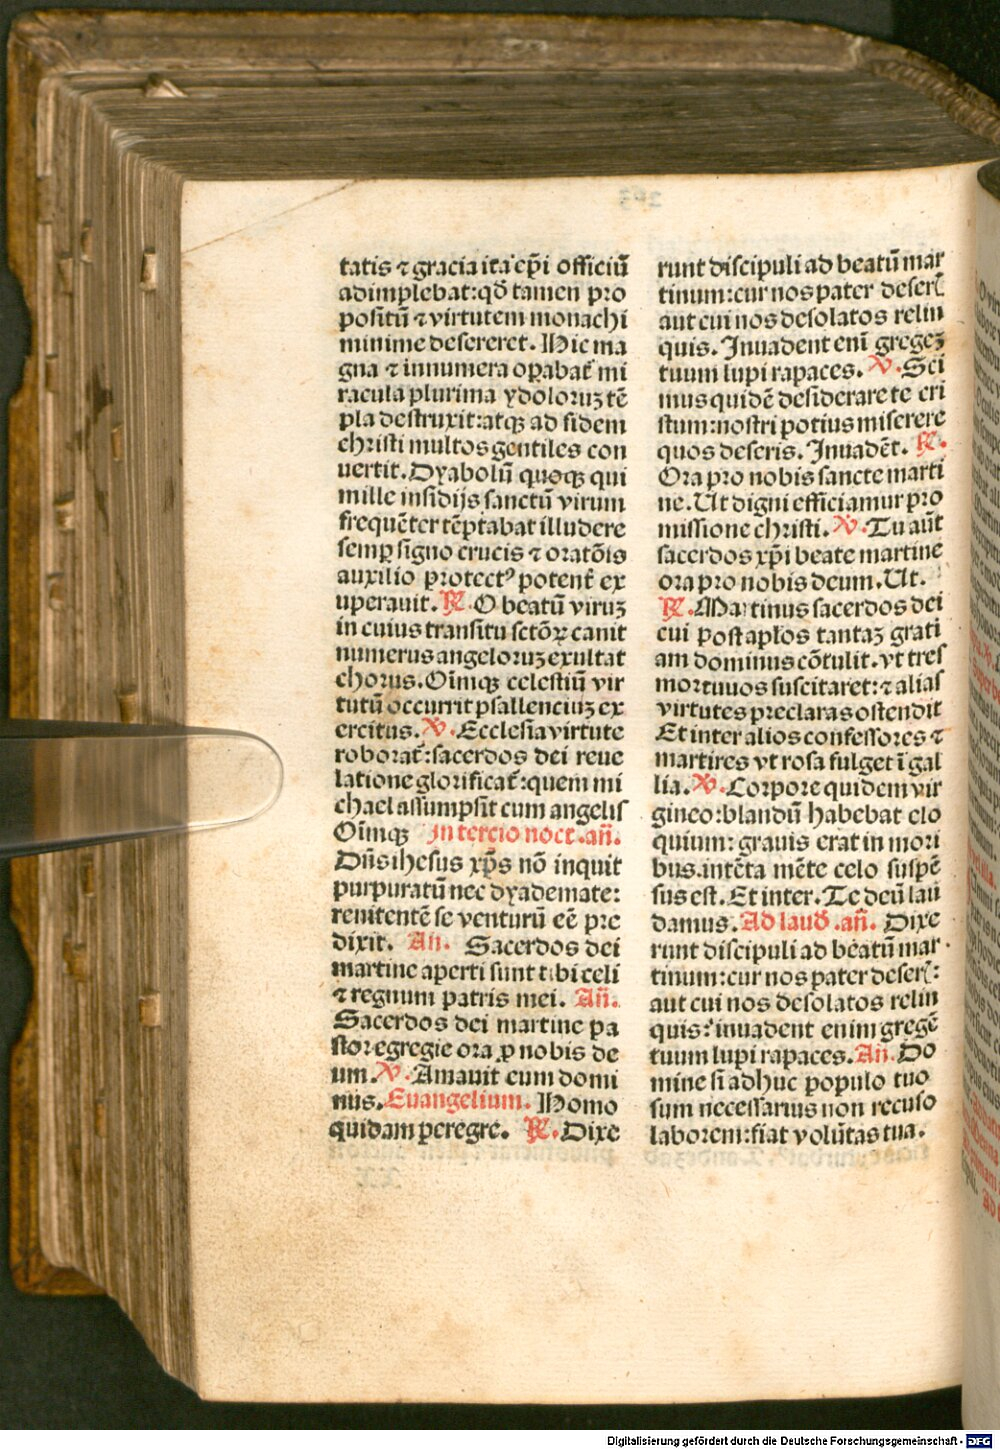 tatis ⁊ gracia ita ep̄i officiū
adimplebat: qð tamen pro
positū ⁊ virtutem monachi
minime desereret. Hic ma
gna ⁊ innumera oꝑabat᷑ mi
racula plurima ydoloruꝫ tē
pla destruxit: atqꝫ ad fidem
christi multos gentiles con
uertit. Dyabolū quoqꝫ qui
mille insidijs sanctū virum
frequēter tēptabat illudere
semꝑ signo crucis ⁊ oratōis
auxilio protectꝰ potent᷑ ex
uperauit. ℟. O beatū viruꝫ
in cuius transitu sctōꝝ canit
numerus angeloruꝫ exultat
chorus. Oīmqꝫ celestiū vir
tutū occurrit psallenciuꝫ ex
ercitus. ℣. Ecclesia virtute
roborat᷑: sacerdos dei reue
latione glorificat᷑: quem mi
chael assumpsit cum angelis
Oīmqꝫ In tercio noct. an̄.
Dn̄s ihesus xp̄s nō inquit
purpuratū nec dyademate:
renitentē se venturū eē pre
dixit. An̄. Sacerdos dei
martine aperti sunt tibi celi
⁊ regnum patris mei. An̄.
Sacerdos dei martine pa
stor egregie ora ꝓ nobis de
um. ℣. Amauit eum domi
nus. Euangelium. Homo
quidam ꝑegre. ℟. Dixe
runt discipuli ad beatū mar
tinum: cur nos pater deser᷑
aut cui nos desolatos relin
quis. Inuadent enī gregeꝫ
tuum lupi rapaces. ℣. Sci
mus quidē desiderare te cri
stum: nostri potius miserere
quos deseris. Inuadēt. ℟.
Ora pro nobis sancte marti
ne. Ut digni efficiamur pro
missione christi. ℣. Tu aūt
sacerdos xp̄i beate martine
ora pro nobis deum. Ut.
℟. Martinus sacerdos dei
cui post apl̄os tantaꝫ grati
am dominus cōtulit. vt tres
mortuos suscitaret: ⁊ alias
virtutes preclaras ostendit
Et inter alios confessores ⁊
martires vt rosa fulget ī gal
lia. ℣. Corpore quidem vir
gineo: blandū habebat elo
quium: grauis erat in mori
bus. intēta mēte celo suspē
sus est. Et inter. Te deū lau
damus. Ad laud̄. an̄. Dixe
runt discipuli ad beatū mar
tinum: cur nos pater deser᷑:
aut cui nos desolatos relin
quis: inuadent enim gregē
tuum lupi rapaces. An̄. Do
mine si adhuc populo tuo
sum necessarius non recuso
laborem: fiat volūtas tua.
Digitalisierung gefördert durch die Deutsche Forschungsgemeinschaft - DFG